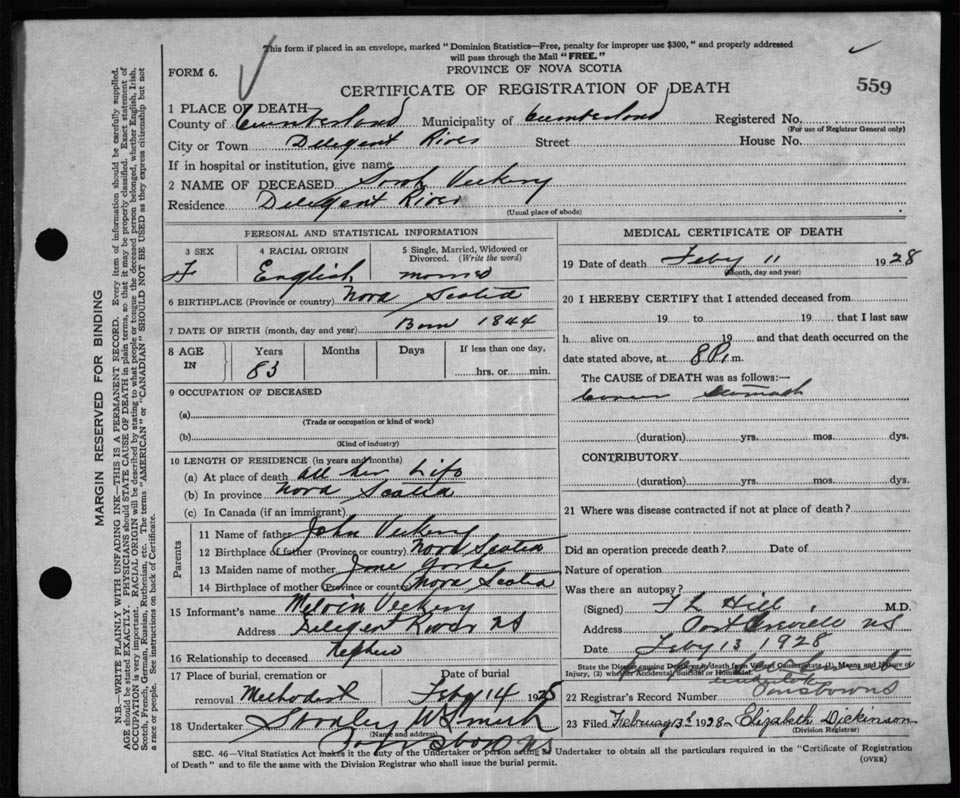 This form if placed in an envelope, marked "Dominion Statistics—Free, penalty for improper use $300," and properly addressed
will pass through the Mail "FREE."
FORM 6.
PROVINCE OF NOVA SCOTIA
CERTIFICATE OF REGISTRATION OF DEATH
559
1 PLACE OF DEATH
County of Cumberland Municipality of Cumberland Registered No.
(For use of Registrar General only)
City or Town Diligent River Street House No.
If in hospital or institution, give name
2 NAME OF DECEASED Sarah Vickery
Residence Diligent River
(Usual place of abode)
PERSONAL AND STATISTICAL INFORMATION
3 SEX 4 RACIAL ORIGIN 5 Single, Married, Widowed or
Divorced. (Write the word)
F English
6 BIRTHPLACE (Province or country) Nova Scotia
7 DATE OF BIRTH (month, day and year) Born 1844
8 AGE IN Years Months Days If less than one day,
83 hrs. or min.
9 OCCUPATION OF DECEASED
(a)
(Trade or occupation or kind of work)
(b)
(Kind of industry)
10 LENGTH OF RESIDENCE (in years and months)
(a) At place of death all her Life
(b) In province Nova Scotia
(c) In Canada (if an immigrant)
Parents
11 Name of father John Vickery
12 Birthplace of father (Province or country) Nova Scotia
13 Maiden name of mother Jane
14 Birthplace of mother (Province or country) Nova Scotia
15 Informant's name Melvin Vickery
Address Diligent River NS
16 Relationship to deceased Nephew
17 Place of burial, cremation or Date of burial
removal Methodist Feby 14 1925
18 Undertaker W Smith
(Name and address)
MEDICAL CERTIFICATE OF DEATH
19 Date of death Feby 11 1928
(Month, day and year)
20 I HEREBY CERTIFY that I attended deceased from
19 to 19 that I last saw
h alive on 19 and that death occurred on the
date stated above, at 8 P.m.
The CAUSE of DEATH was as follows:—
Cancer Stomach
(duration) yrs. mos. dys.
CONTRIBUTORY
(duration) yrs. mos. dys.
21 Where was disease contracted if not at place of death?
Did an operation precede death? Date of
Nature of operation
Was there an autopsy?
(Signed) T L Hill M.D.
Address Port Greville NS
Date Feby 13 1928
State the Disease causing Death, or in death from Violent Causes state (1), Means and Nature of
Injury, (2) whether Accidental Suicidal or Homicidal.
22 Registrar's Record Number
23 Filed February 13th 1928 Elizabeth Dickinson
(Division Registrar)
SEC. 46—Vital Statistics Act makes it the duty of the Undertaker or person acting as Undertaker to obtain all the particulars required in the "Certificate of Registration
of Death" and to file the same with the Division Registrar who shall issue the burial permit.
(OVER)
MARGIN RESERVED FOR BINDING
N.B.—WRITE PLAINLY WITH UNFADING INK—THIS IS A PERMANENT RECORD. Every item of information should be carefully supplied.
AGE should be stated EXACTLY. PHYSICIANS should STATE CAUSE OF DEATH in plain terms, so that it may be properly classified. Exact statement of
OCCUPATION is very important. RACIAL ORIGIN will be described by stating to what people or tongue the deceased person belonged, whether English, Irish,
Scotch, French, German, Russian, Ruthenian, etc. The terms "AMERICAN" or "CANADIAN" SHOULD NOT BE USED as they express citizenship but not
a race or people. See instructions on back of Certificate.